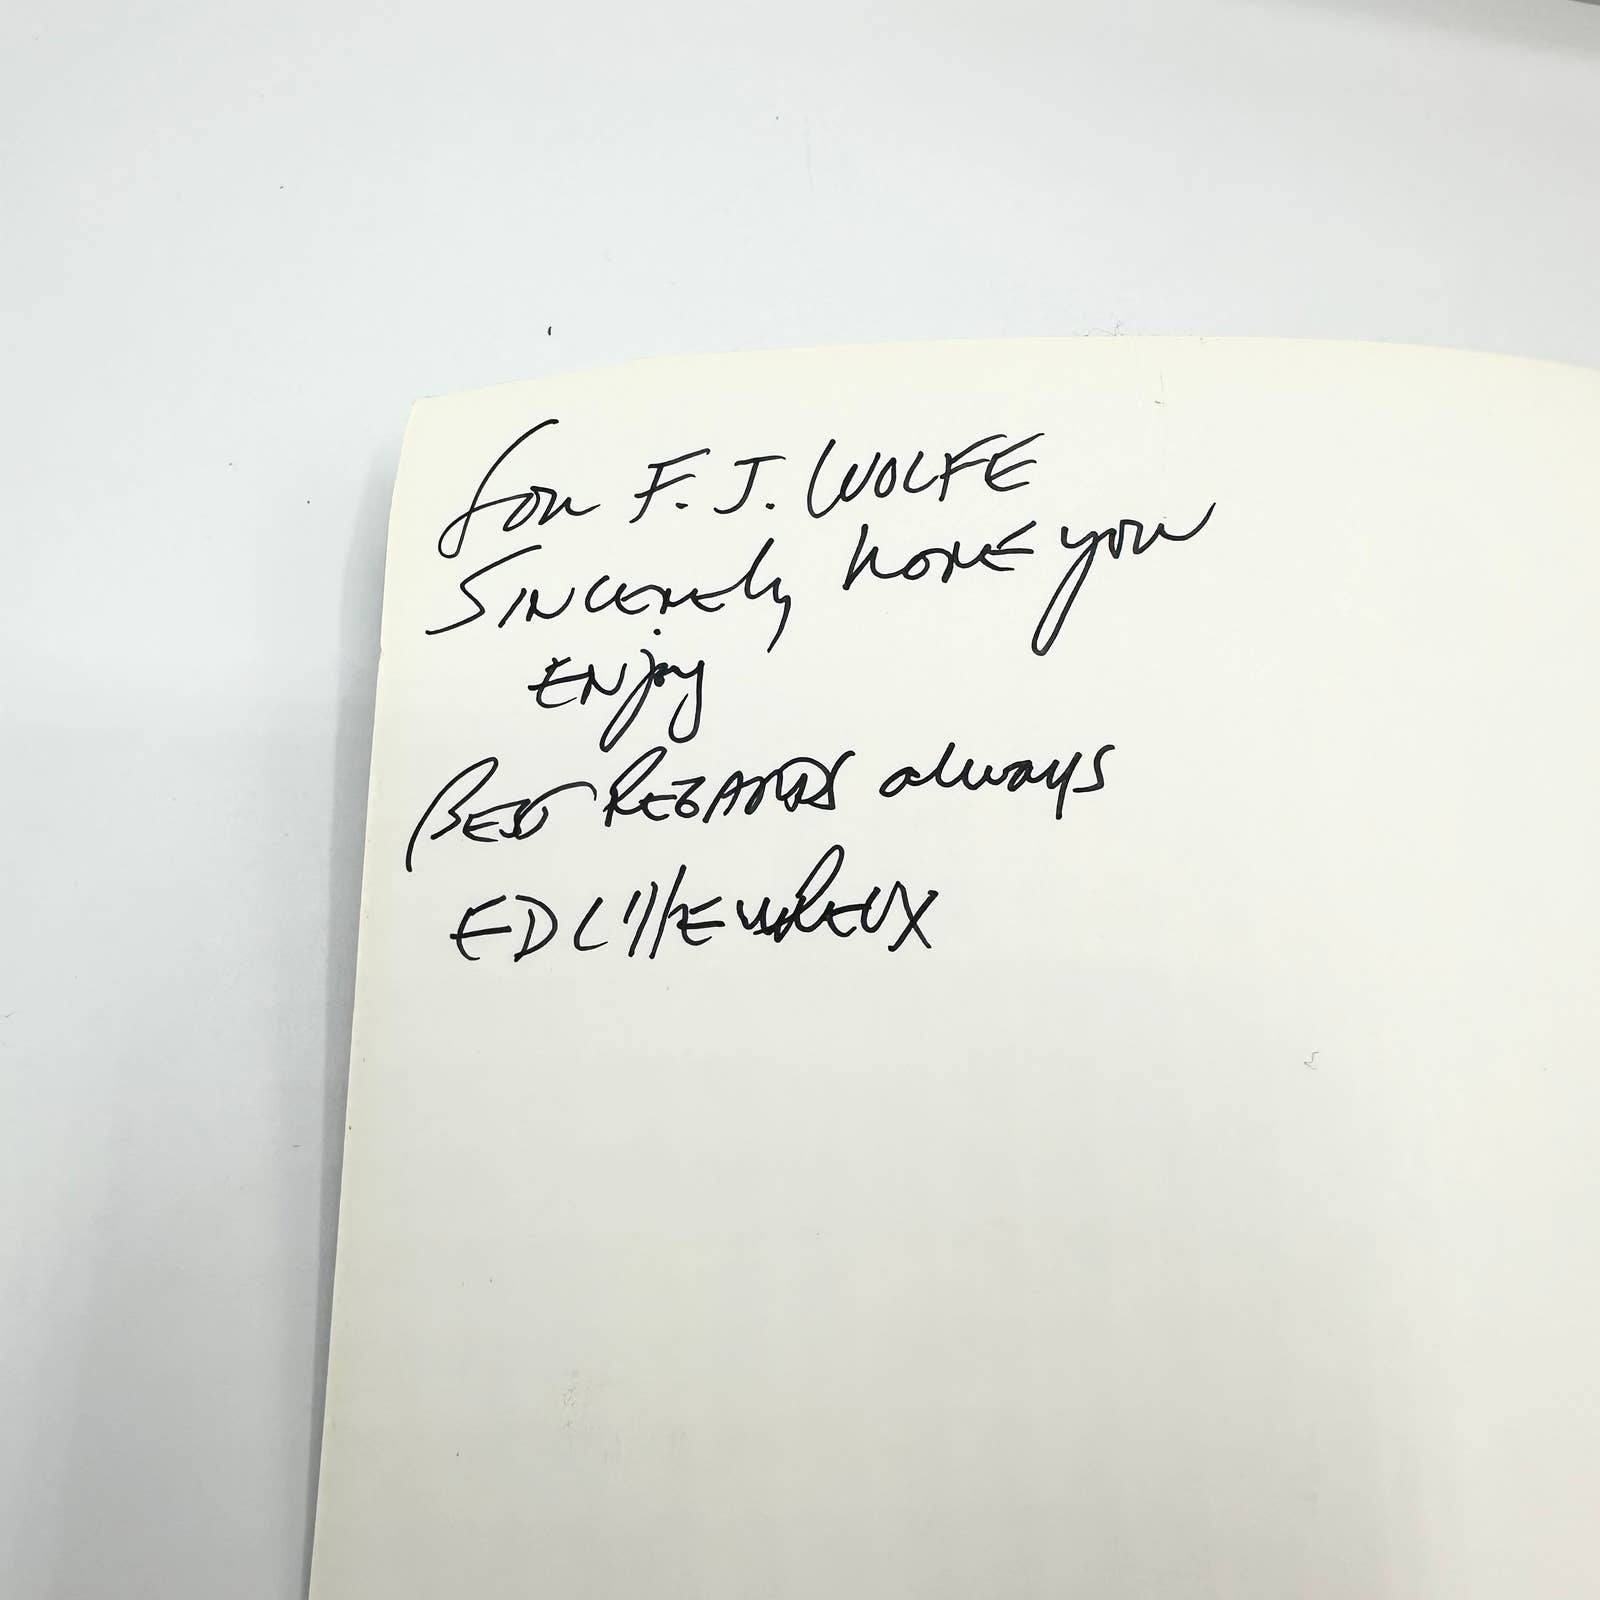 for F. J. WOLFE
SINCERELY HOPE you
ENjoy
BEST REGARDS always
ED L'HEUREUX